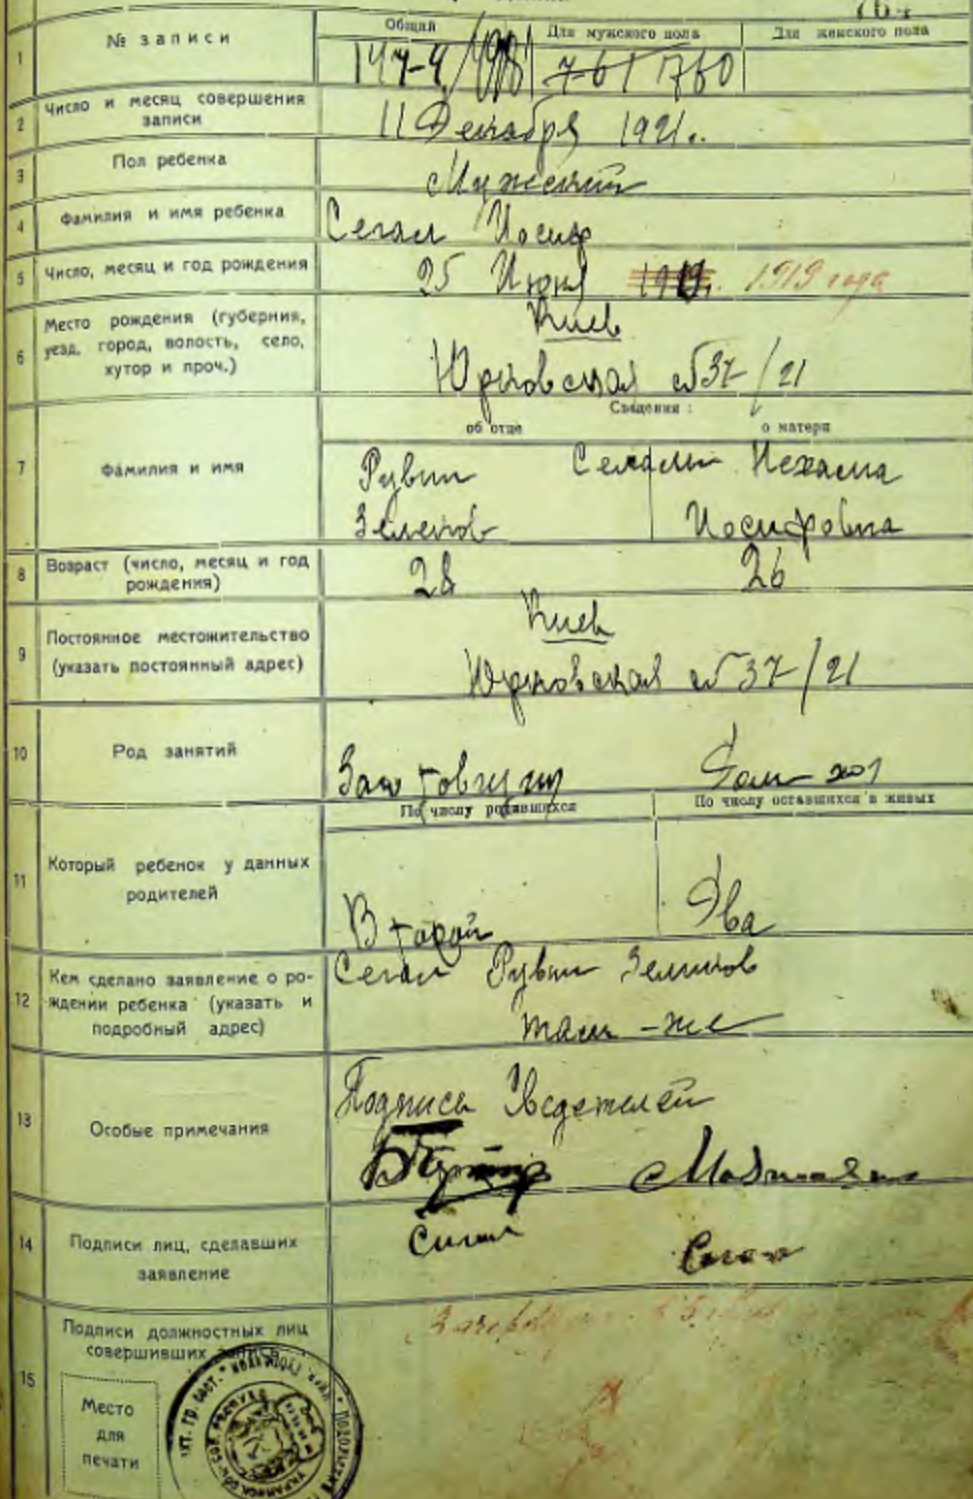 1 № записи
Общий Для мужского пола Для женского пола
761 760
2 Число и месяц совершения записи
11 Декабря 1921.
3 Пол ребенка
Мужский
4 Фамилия и имя ребенка
Сегал Иосиф
5 Число, месяц и год рождения
25 Июня 1919 года
6 Место рождения (губерния,
уезд, город, волость, село,
хутор и проч.)
Киев
Юрковская № 37/21
Сведения:
об отце о матери
7 Фамилия и имя
Рувин Сегалы Нехама
Зеленов Иосифовна
8 Возраст (число, месяц и год
рождения)
28 26
9 Постоянное местожительство
(указать постоянный адрес)
Киев
Юрковская № 37/21
10 Род занятий
Дом хоз
По числу родившихся По числу оставшихся в живых
11 Который ребенок у данных
родителей
Второй Два
12 Кем сделано заявление о ро-
ждении ребенка (указать и
подробный адрес)
Сегал Рувин Зелинов
там-же
13 Особые примечания
Подписи Сведетелей
14 Подписи лиц, сделавших
заявление
Сигал Сегал
15 Подписи должностных лиц
совершивших запись
Место
для
печати